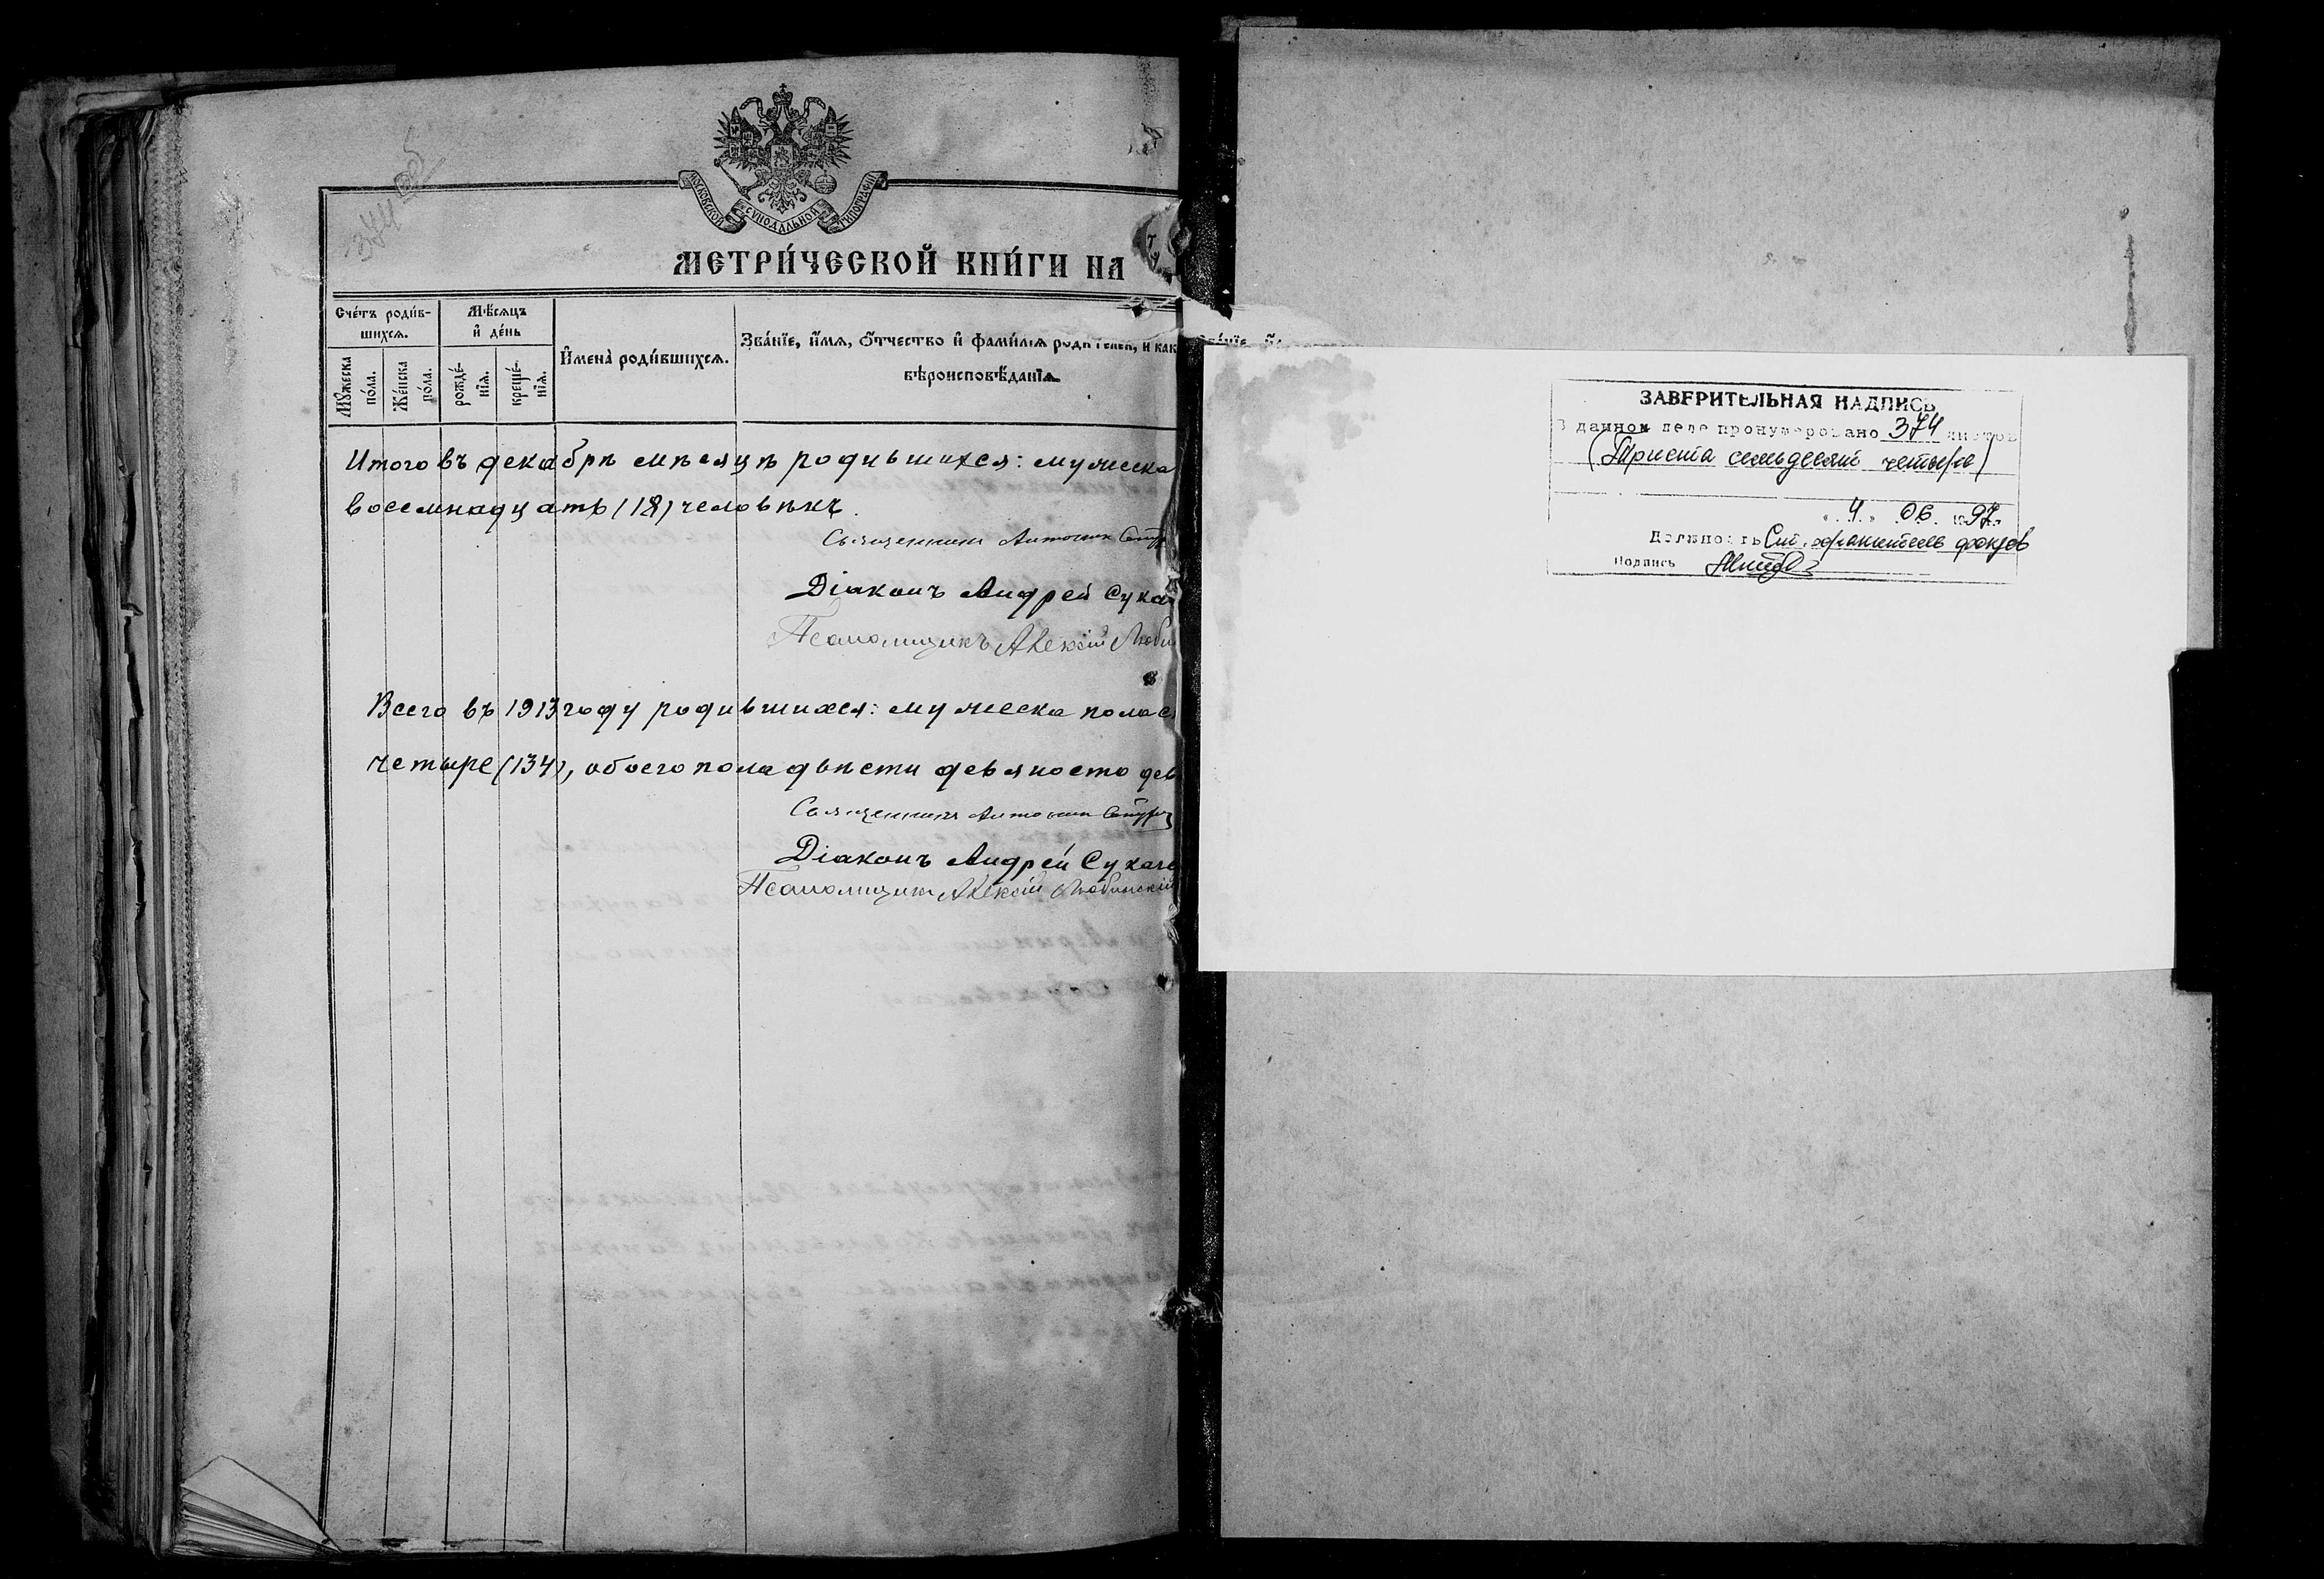 374 об
МОСКОВСКОЙ СѴНОДАЛЬНОЙ ТИПОГРАФІИ
МЕТРИ́ЧЕСКОЙ КНИ́ГИ НА
Сче́тъ роди́в-
шихсѧ.
Мꙋ́жеска
по́ла.
Же́нска
по́ла.
Мѣ́сѧцъ
и҆ де́нь
рожде́-
нїѧ.
креще́-
нїѧ.
И҆мена̀ роди́вшихсѧ.
Зва́нїе, и҆́мѧ, ѻ҆́тчество и҆ фами́лїѧ роди́телей, и как
вѣроисповѣ́данїѧ.
Итого въ декабрѣ мѣсяцѣ родившихся: мужеска
восемнадцать (18) человѣкъ.
Священникъ Антоній
Діаконъ Андрей Сука
Псаломщикъ Алексій Люби
Всего въ 1913 году родившихся: мужеска пола с
четыре (134), обоего пола двѣсти девяносто дев
Священникъ Антоній
Діаконъ Андрей Сукаче
Псаломщикъ Алексій Любинскій
ЗАВЕРИТЕЛЬНАЯ НАДПИСЬ
В данном деле пронумеровано 374 листов
(Триста семьдесят четыре)
"4" 06. 1997 г.
Должность Ст. хранитель фондов
Подпись